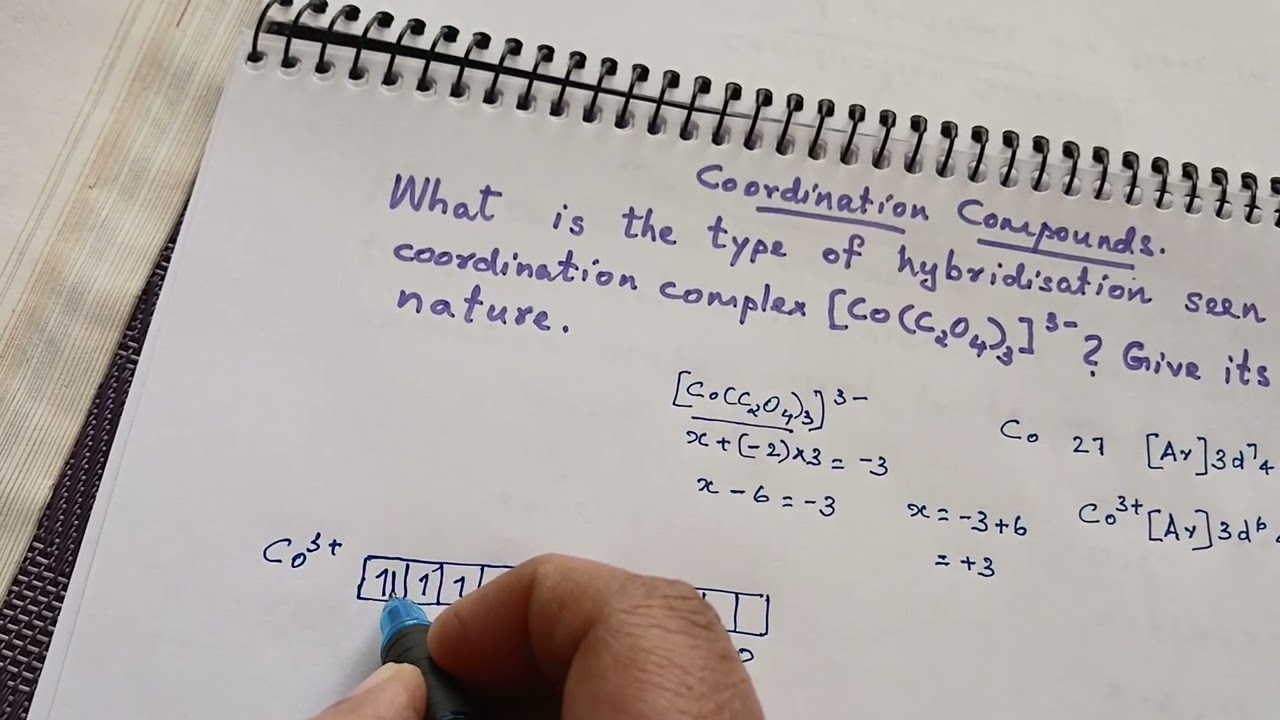 Coordination Compounds.
What is the type of hybridisation seen
coordination complex [Co(C₂O₄)₃]³⁻? Give its
nature.
[Co(C₂O₄)₃]³⁻
x + (-2)×3 = -3
x - 6 = -3
x = -3+6
= +3
Co 27 [Ar]3d⁷4
Co³⁺ [Ar]3d⁶
Co³⁺ 1| 1 1